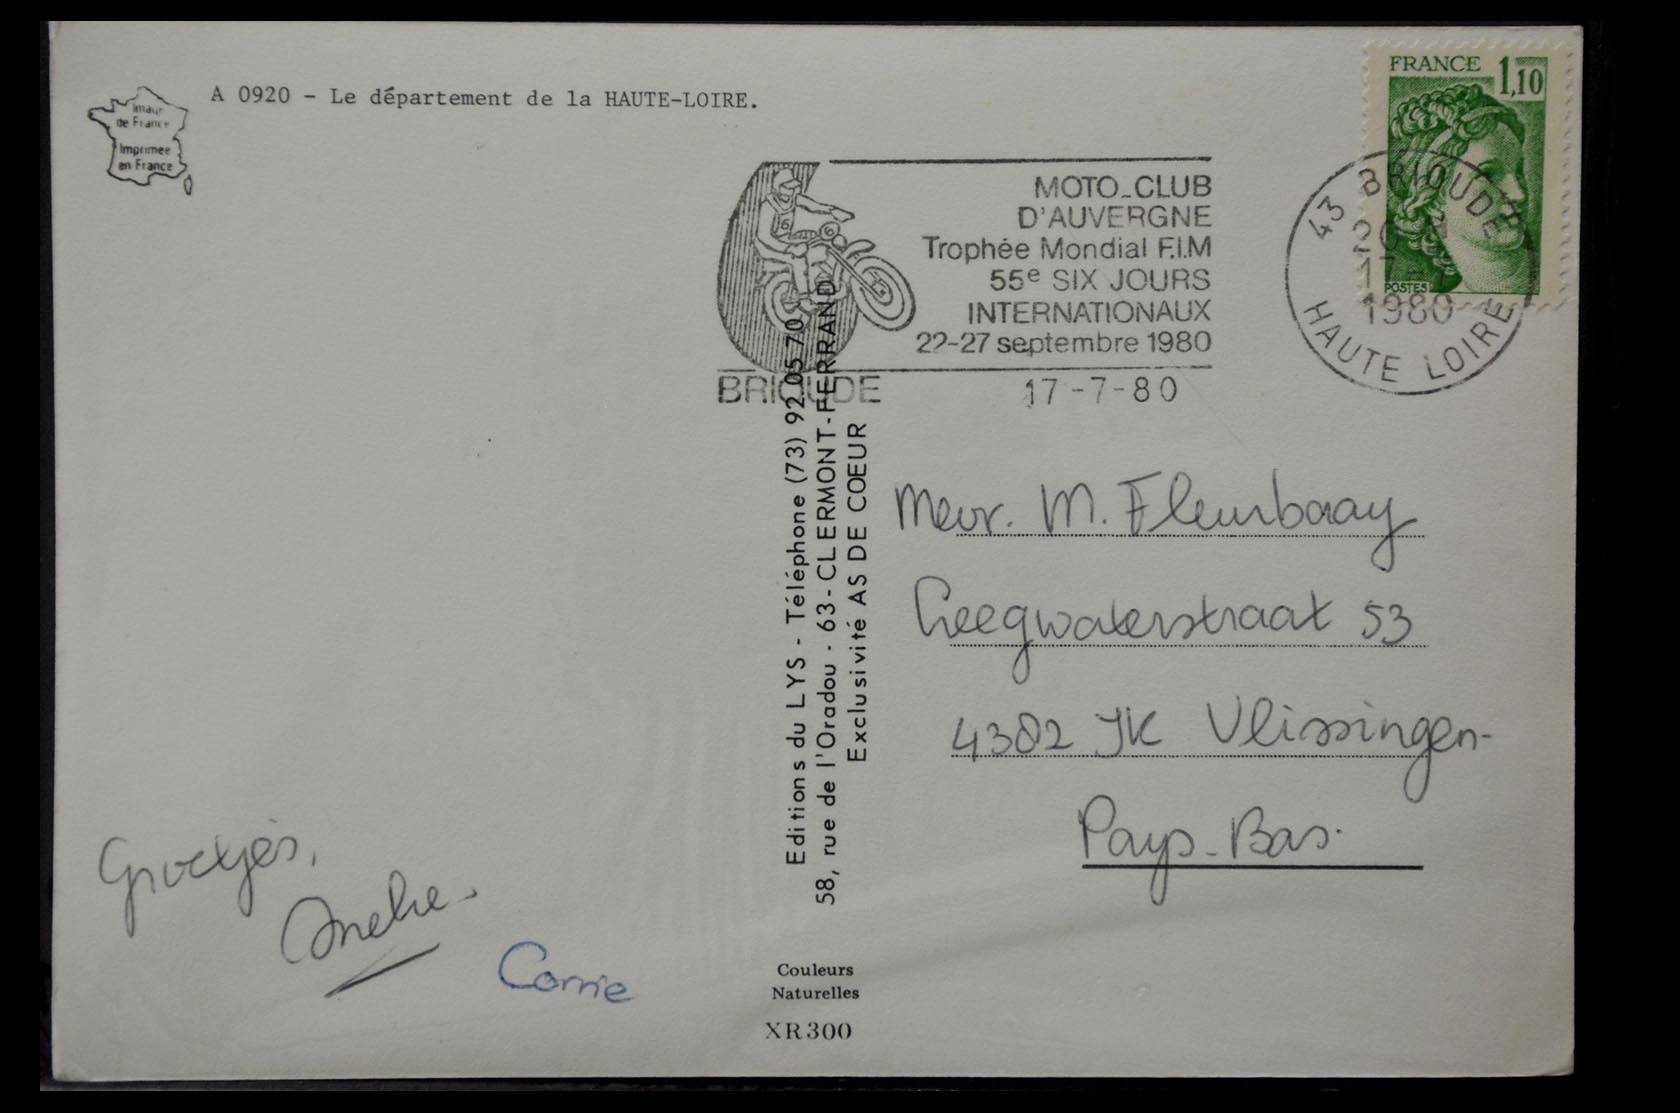 A 0920 - Le département de la HAUTE-LOIRE.
Image
de France
Imprimée
en France
FRANCE 1,10
POSTES
MOTO_CLUB
D'AUVERGNE
Trophée Mondial F.I.M
55e SIX JOURS
INTERNATIONAUX
22-27 septembre 1980
BRIOUDE 17-7-80
43 BRIOUDE
17-
1980
HAUTE LOIRE
Editions du LYS - Téléphone (73) 92.05.70
58, rue de l'Oradou - 63 - CLERMONT-FERRAND
Exclusivité AS DE COEUR
Mevr. M. Fleurbaay
Leegwaterstraat 53
4382 JK Vlissingen-
Pays-Bas.
Groetjes,
Corrie
Couleurs
Naturelles
XR300